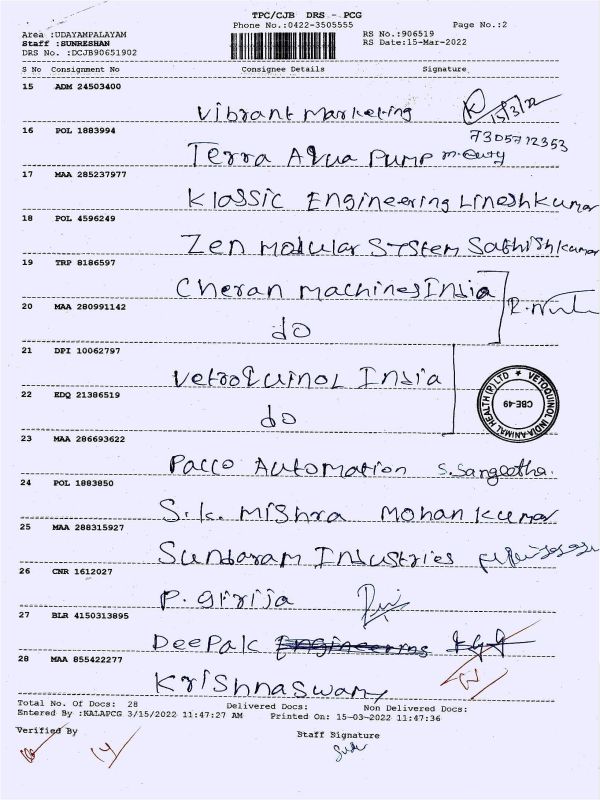 TPC/CJB DRS - PCG
Phone No.:0422-3505555 Page No.:2
Area :UDAYAMPALAYAM RS No.:906519
Staff :SUNRESHAN RS Date:15-Mar-2022
DRS No. :DCJB90651902
S No Consignment No Consignee Details Signature
15 ADM 24503400
Vibrant Marketing 15/3/22
16 POL 1883994 7305712353
Terra Aqua Pump
17 MAA 285237977
Klassic Engineering Lineshkumar
18 POL 4596249
Zen Modular System Sathishkumar
19 TRP 8186597
Cheran Machines India
20 MAA 280991142
do
21 DPI 10062797
Vetroquinol India
22 EDQ 21386519
do
VETOQUINOL INDIA ANIMAL HEALTH (P) LTD
CBE-49
23 MAA 286693622
Pacco Automation S. Sangeetha.
24 POL 1883850
S.K. Mishra Mohan Kumar
25 MAA 288315927
Sundaram Industries
26 CNR 1612027
P. Girija
27 BLR 4150313895
Deepak
28 MAA 855422277
Krishnaswamy
Total No. Of Docs: 28 Delivered Docs: Non Delivered Docs:
Entered By :KALAPCG 3/15/2022 11:47:27 AM Printed On: 15-03-2022 11:47:36
Verified By Staff Signature